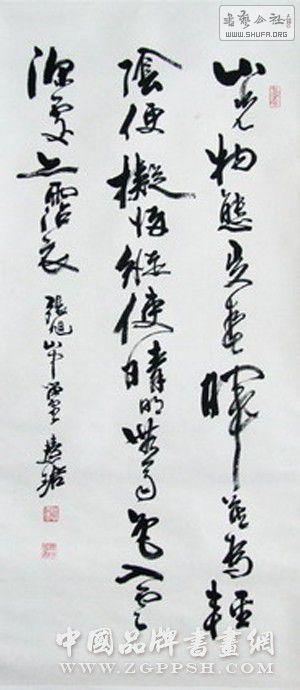 书艺公社
WWW.SHUFA.ORG
山光物態弄春暉莫為輕
陰便擬歸縱使晴明無雨色入雲
深處亦霑衣
張旭山中
中國品牌書畫網
WWW.ZGPPSH.COM